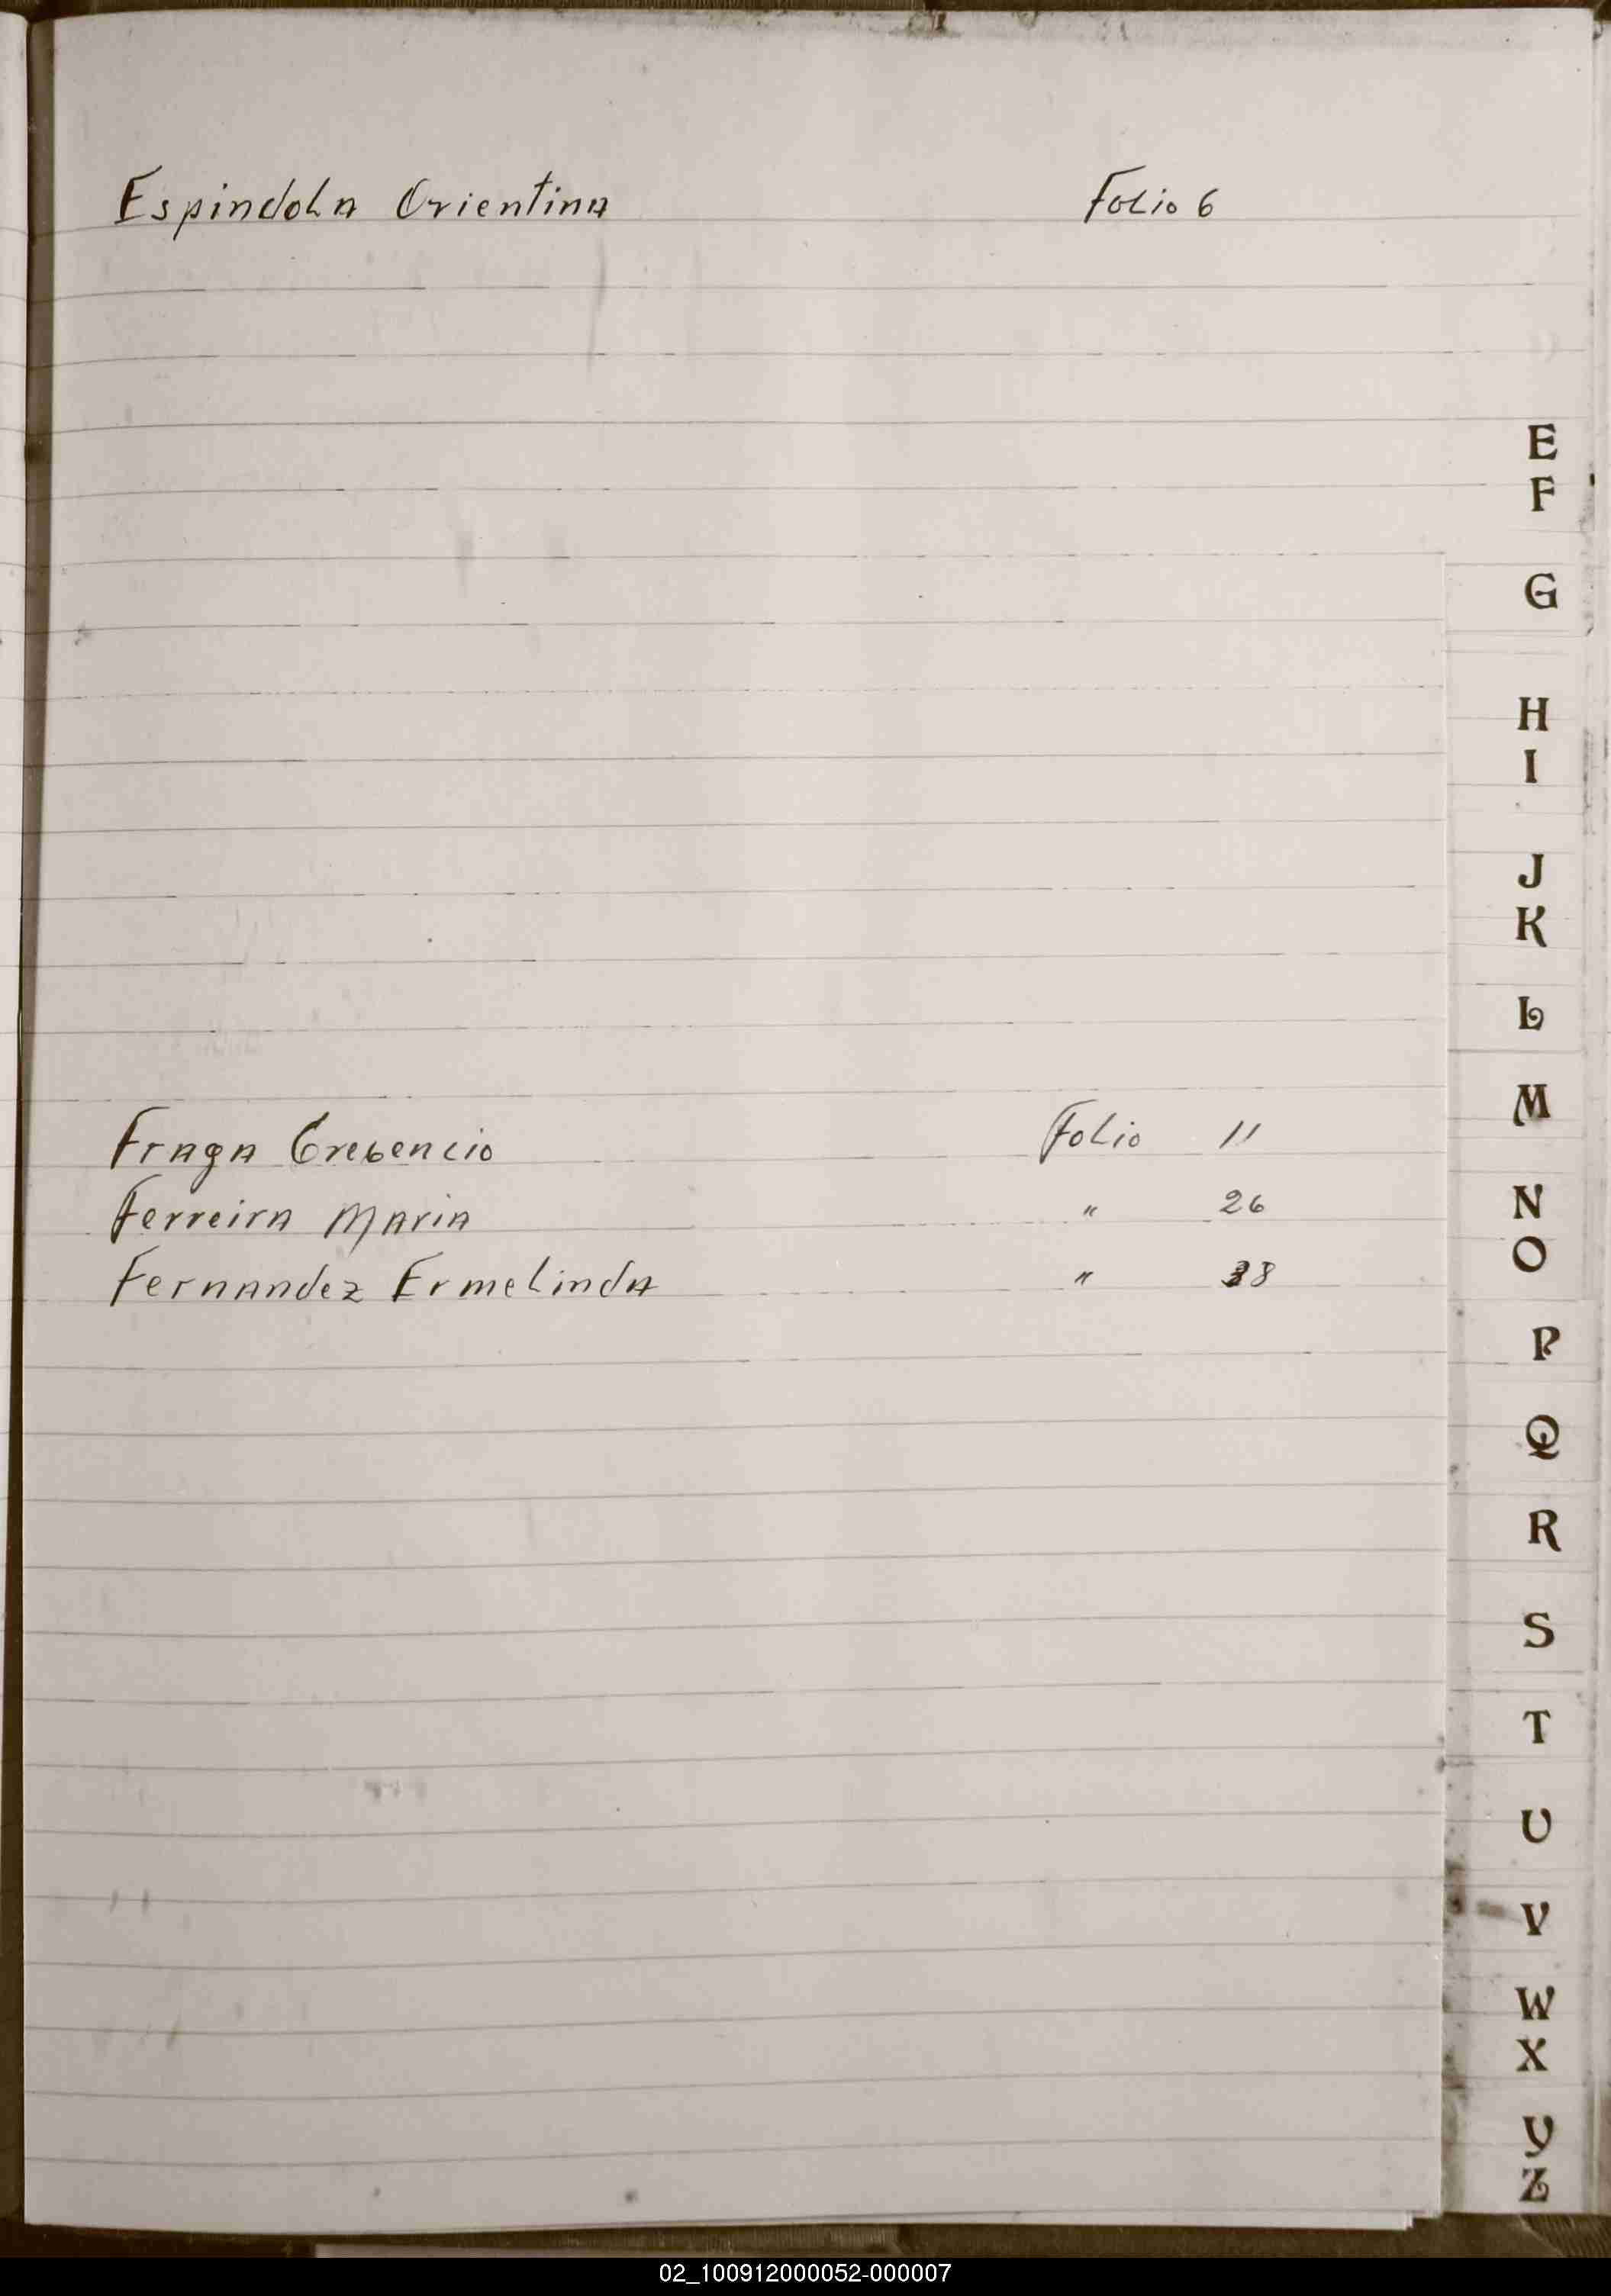 Espindola Orientina Folio 6
E
F
G
H
I
J
K
L
M
Fraga Cresencio Folio 11
Ferreira Maria " 26
Fernandez Ermelinda " 38
N
O
P
Q
R
S
T
U
V
W
X
Y
Z
02_100912000052-000007